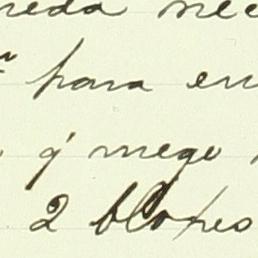 reda nec
para en
q' mego
2 blopes